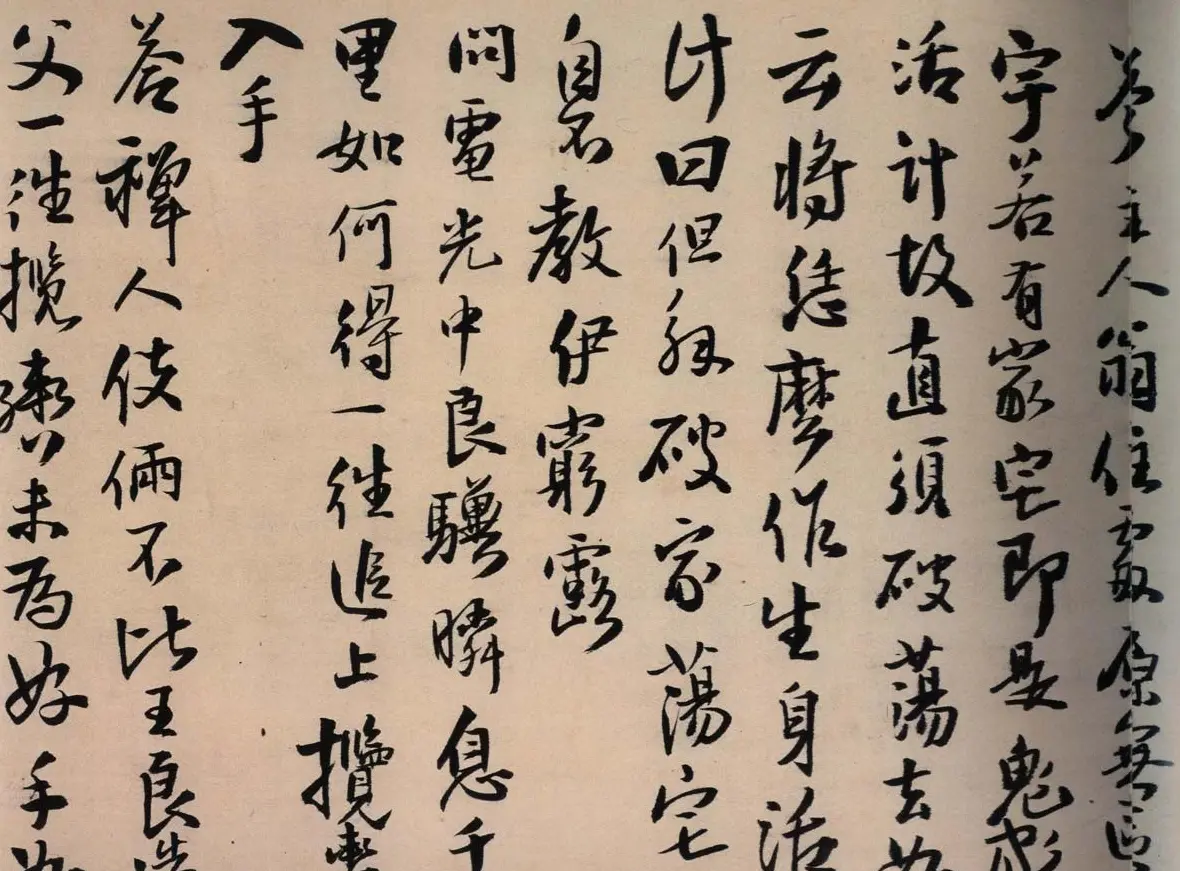 答主人翁住處原無區
宇若有家宅即是鬼
活計故直須破蕩去
云將恁麼作生身活
計曰但解破家蕩宅
自不教伊窮露
問電光中良驥瞬息千
里如何得一往追上攬轡
入手
答禪人伎倆不比王良造
父一往攬轡只未為好手